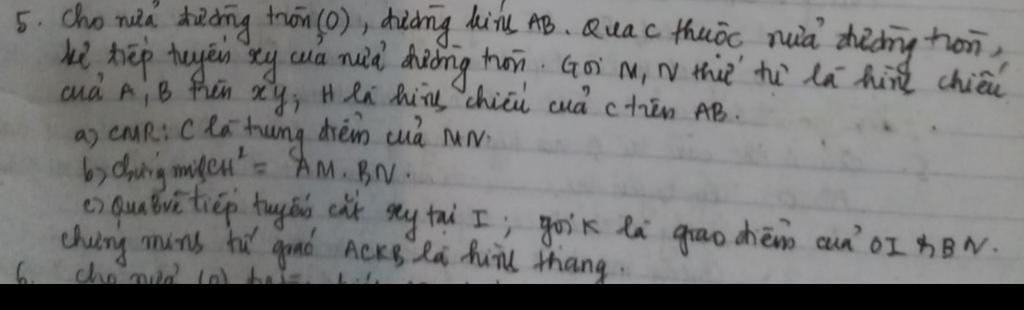 5. Cho nửa đường tròn (O), đường kính AB. Qua C thuộc nửa đường tròn,
kẻ tiếp tuyến xy của nửa đường tròn. Gọi M, N thứ tự là hình chiếu
của A, B trên xy, H là hình chiếu của C trên AB.
a) CMR: C là trung điểm của MN.
b) Chứng minh CH² = AM. BN.
c) Qua B vẽ tiếp tuyến cắt xy tại I; gọi K là giao điểm của OI và BN.
chứng minh tứ giác ACKB là hình thang.
6. Cho nửa (O)